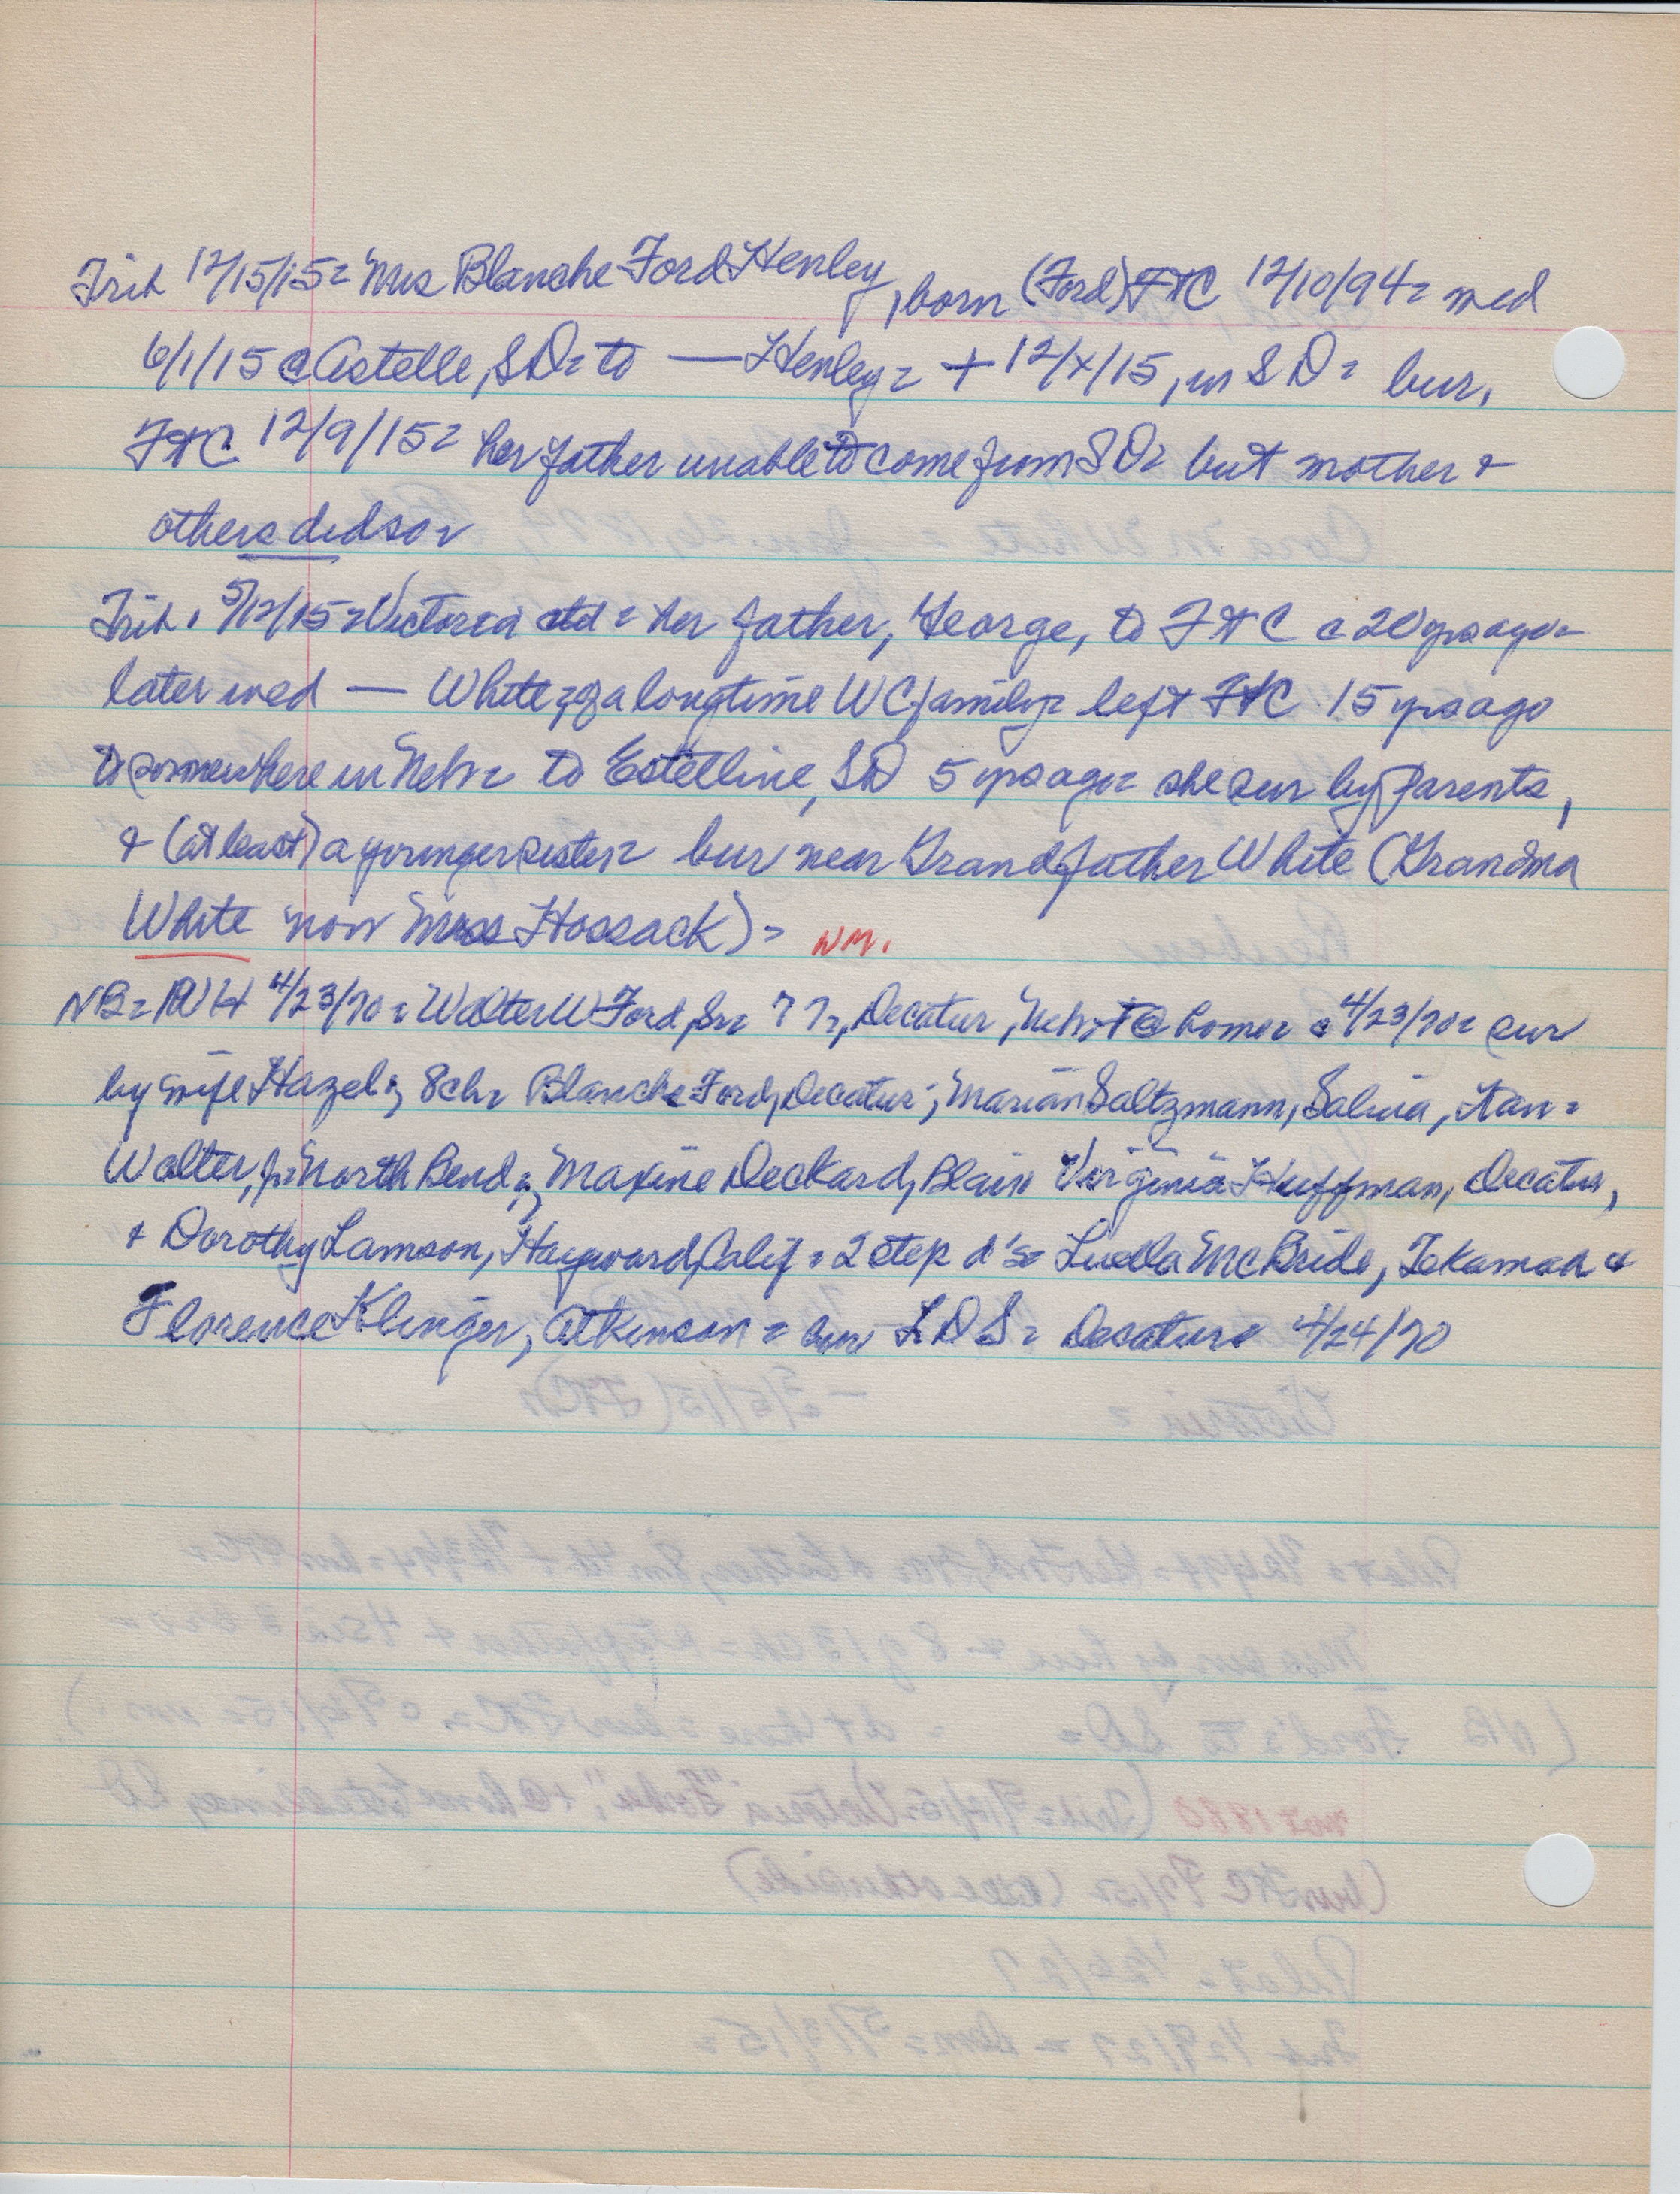 Trib 12/15/15 = Mrs Blanche Ford Henley, born (Ford) FtC 12/10/94 = med
6/1/15 @ Astelle, SD = to — Henley = + 12/x/15, in SD = bur.
FtC 12/9/15 = her father unable to come from SD = but mother &
others did so =
Trib. 5/12/15 = Victoria = her father, George, to FtC c 20 yrs ago =
later med — White = of a longtime WC family = left FtC 15 yrs ago
to somewhere in Nebr = to Estelline, SD 5 yrs ago = she sur by parents,
& (at least) a younger sister = bur near Grandfather White (Grandma
White now Mrs Hossack) = NM.
NB = 4/23/70 = Walter W Ford, Sr = 77 =, Decatur, Nebr + @ home = 4/23/70 = sur
by wife Hazel; 8 ch = Blanche Ford, Decatur; Marian Saltzmann, Salina, Kan =
Walter, Jr = North Bend; Maxine Deckard, Blair Virginia Huffman, Decatur,
& Dorothy Lamson, Hayward, Calif = 2 step d's = Luella McBride, Tekamah &
Florence Klinger, Atkinson = bur LDS = Decatur = 4/24/70